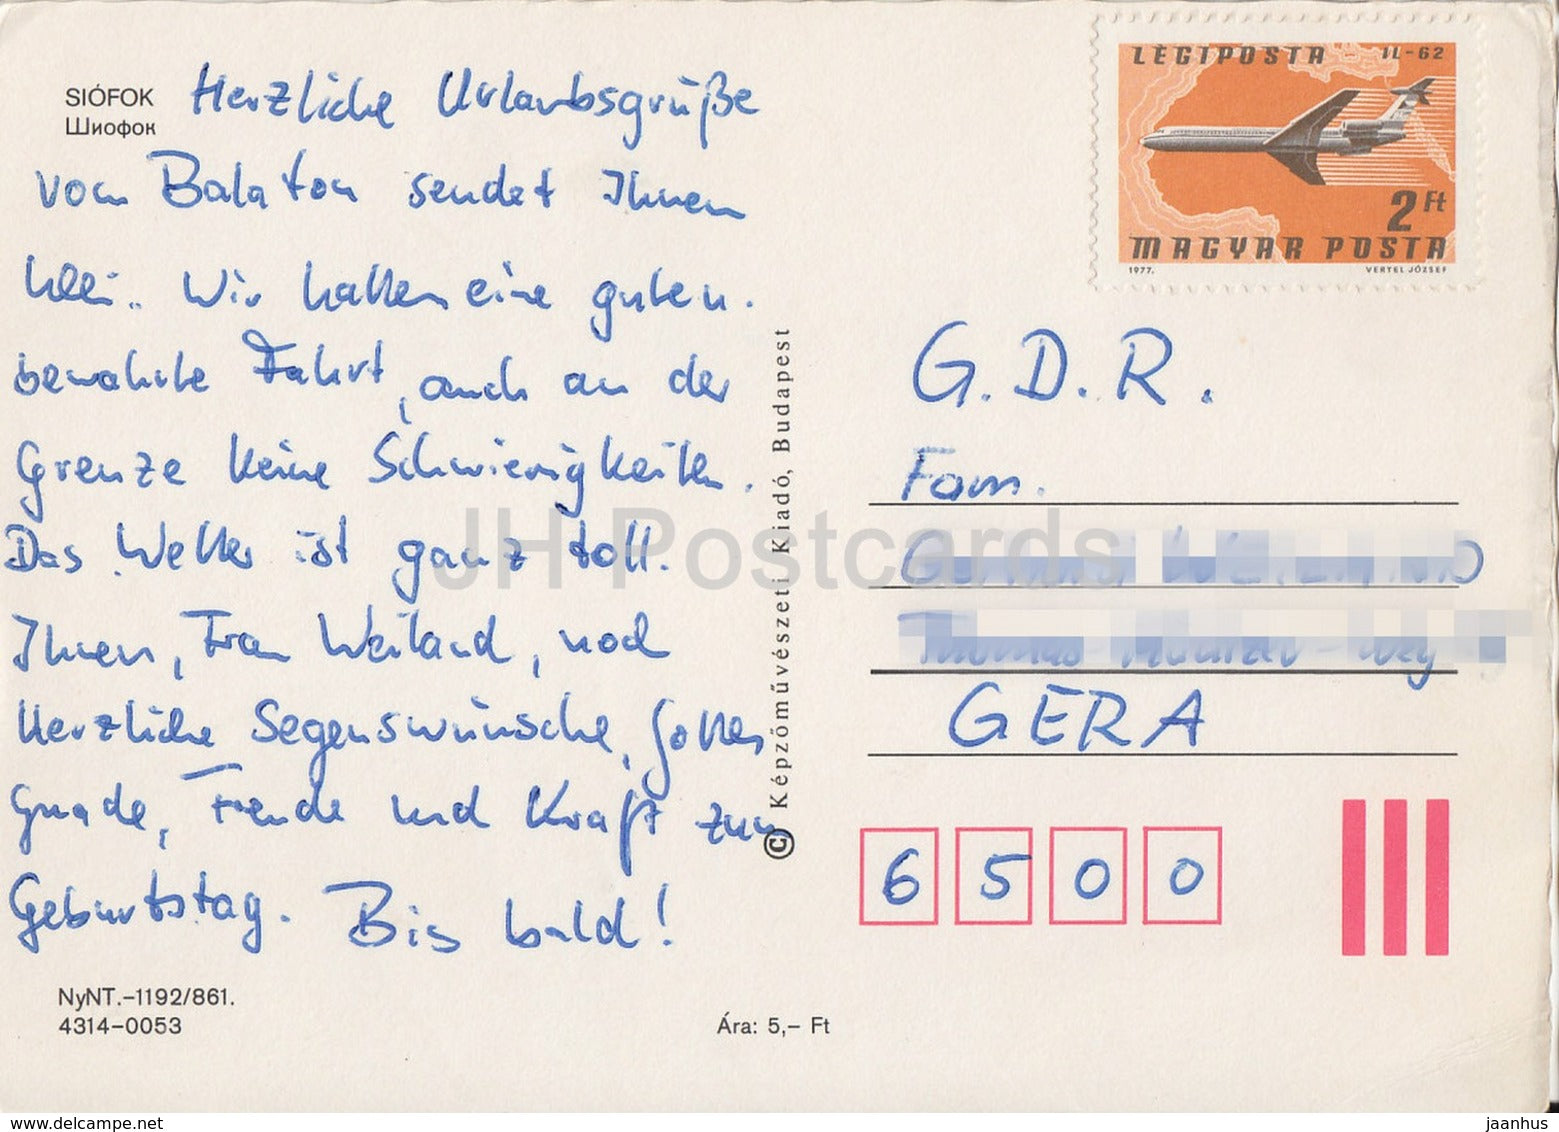 SIÓFOK
Шиофок
Herzliche Urlaubsgrüße
vom Balaton sendet Ihnen
Wir hatten eine guten.
bewahrte Fahrt, auch an der
Grenze keine Schwierigkeiten.
Das Wetter ist ganz toll.
Ihnen, Frau Weiland, noch
Herzliche Segenswünsche, Gottes
Gnade, Freude und Kraft zum
Geburtstag. Bis bald!
NyNT.-1192/861.
4314-0053
Ára: 5,- Ft
© Képzőművészeti Kiadó, Budapest
LÉGIPOSTA - IL-62
2 Ft
MAGYAR POSTA
1977. VERTEL JÓZSEF
G.D.R.
Fam.
GERA
6500
JH Postcards
www.delcampe.net
jaanhus